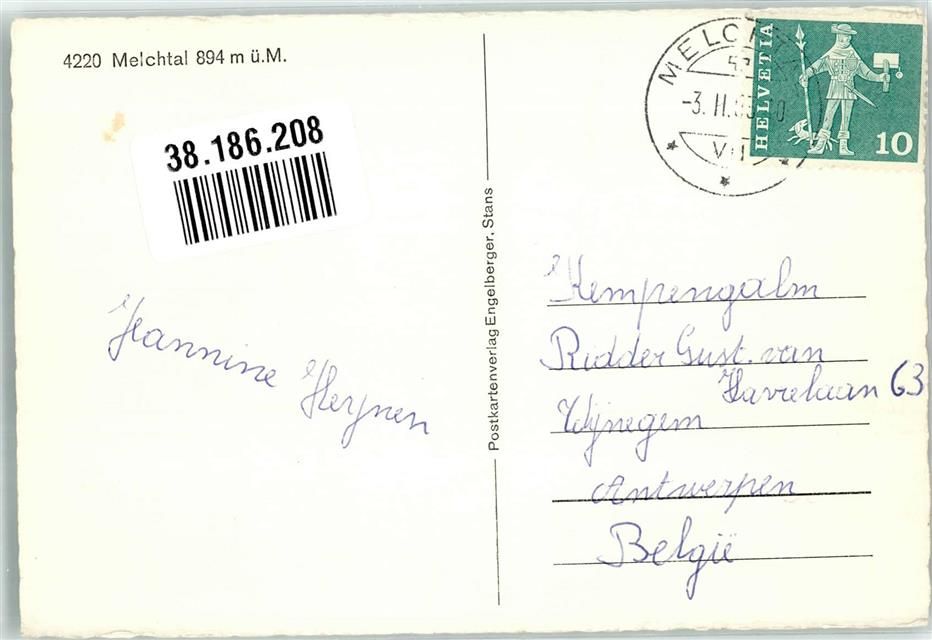 4220 Melchtal 894 m ü.M.
38.186.208
Jeannine Heynen
Postkartenverlag Engelberger, Stans
-3. II.
HELVETIA
10
Kempengalm
Ridder Gust. van
Havrelaan 63
Wijnegem
Antwerpen
België